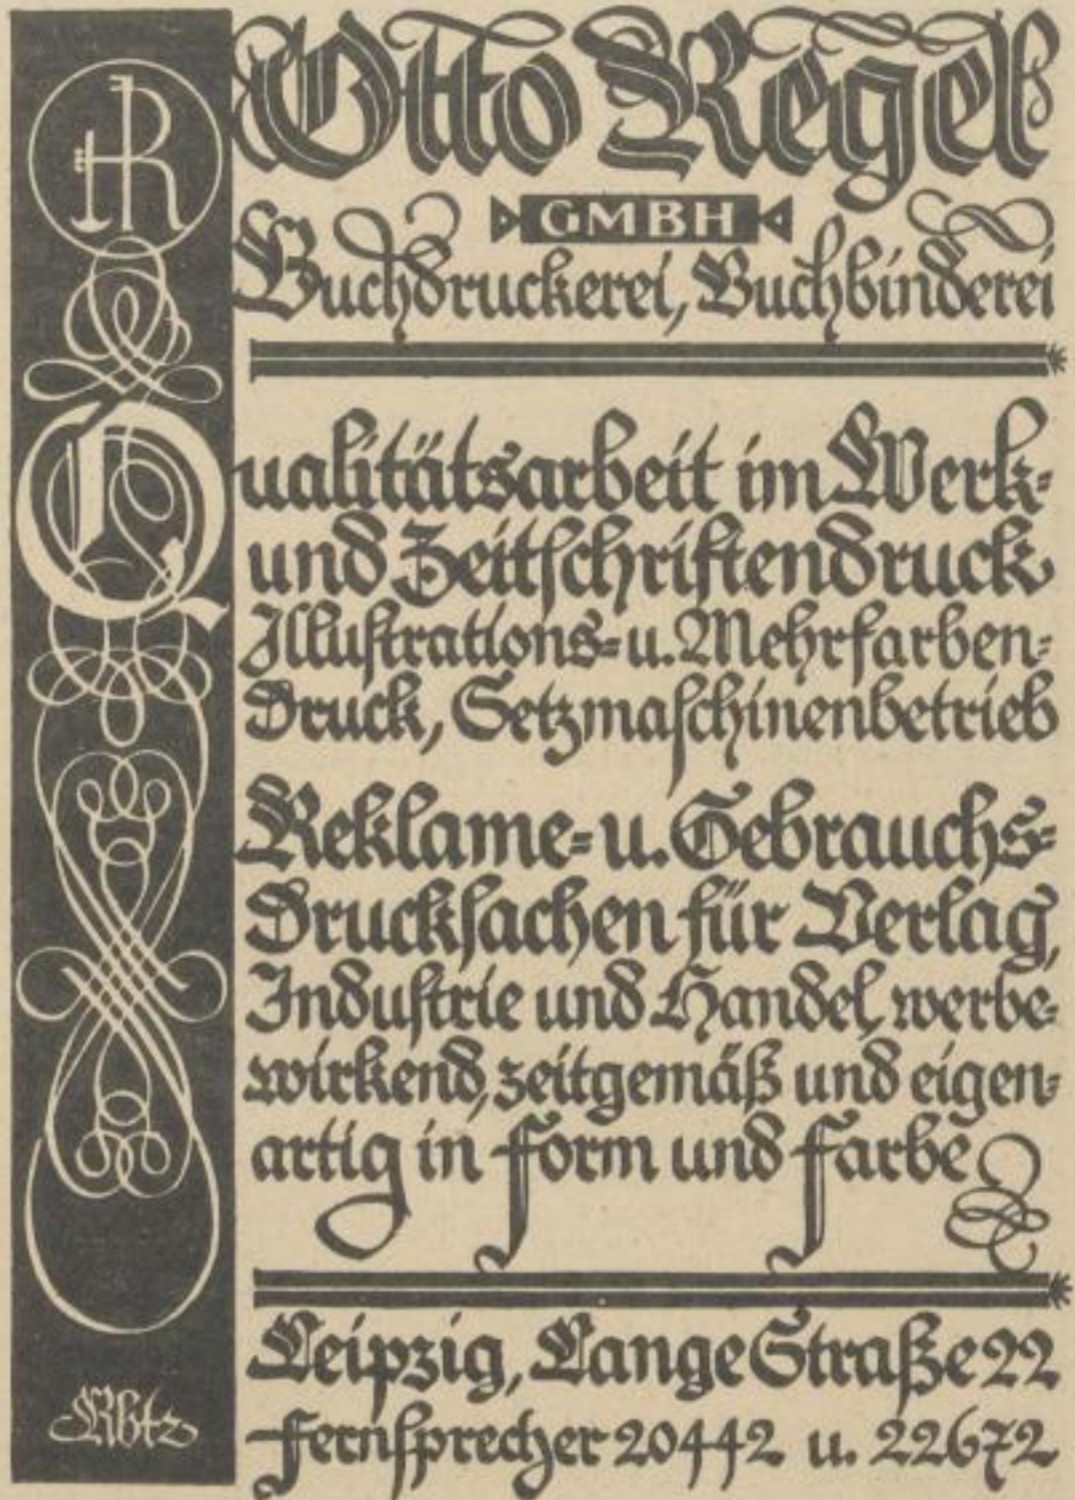 Otto Regel
GMBH
Buchdruckerei, Buchbinderei
Qualitätsarbeit im Werk-
und Zeitschriftendruck
Illustrations- u. Mehrfarben-
Druck, Setzmaschinenbetrieb
Reklame- u. Gebrauchs-
Drucksachen für Verlag,
Industrie und Handel, werbe-
wirkend, zeitgemäß und eigen-
artig in Form und Farbe
Leipzig, Lange Straße 22
Fernsprecher 20442 u. 22672
Rbtz